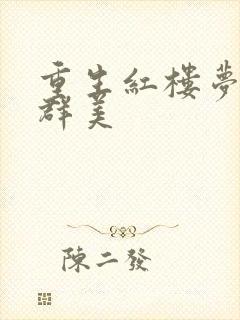 重生紅樓夢
群美
陳二發